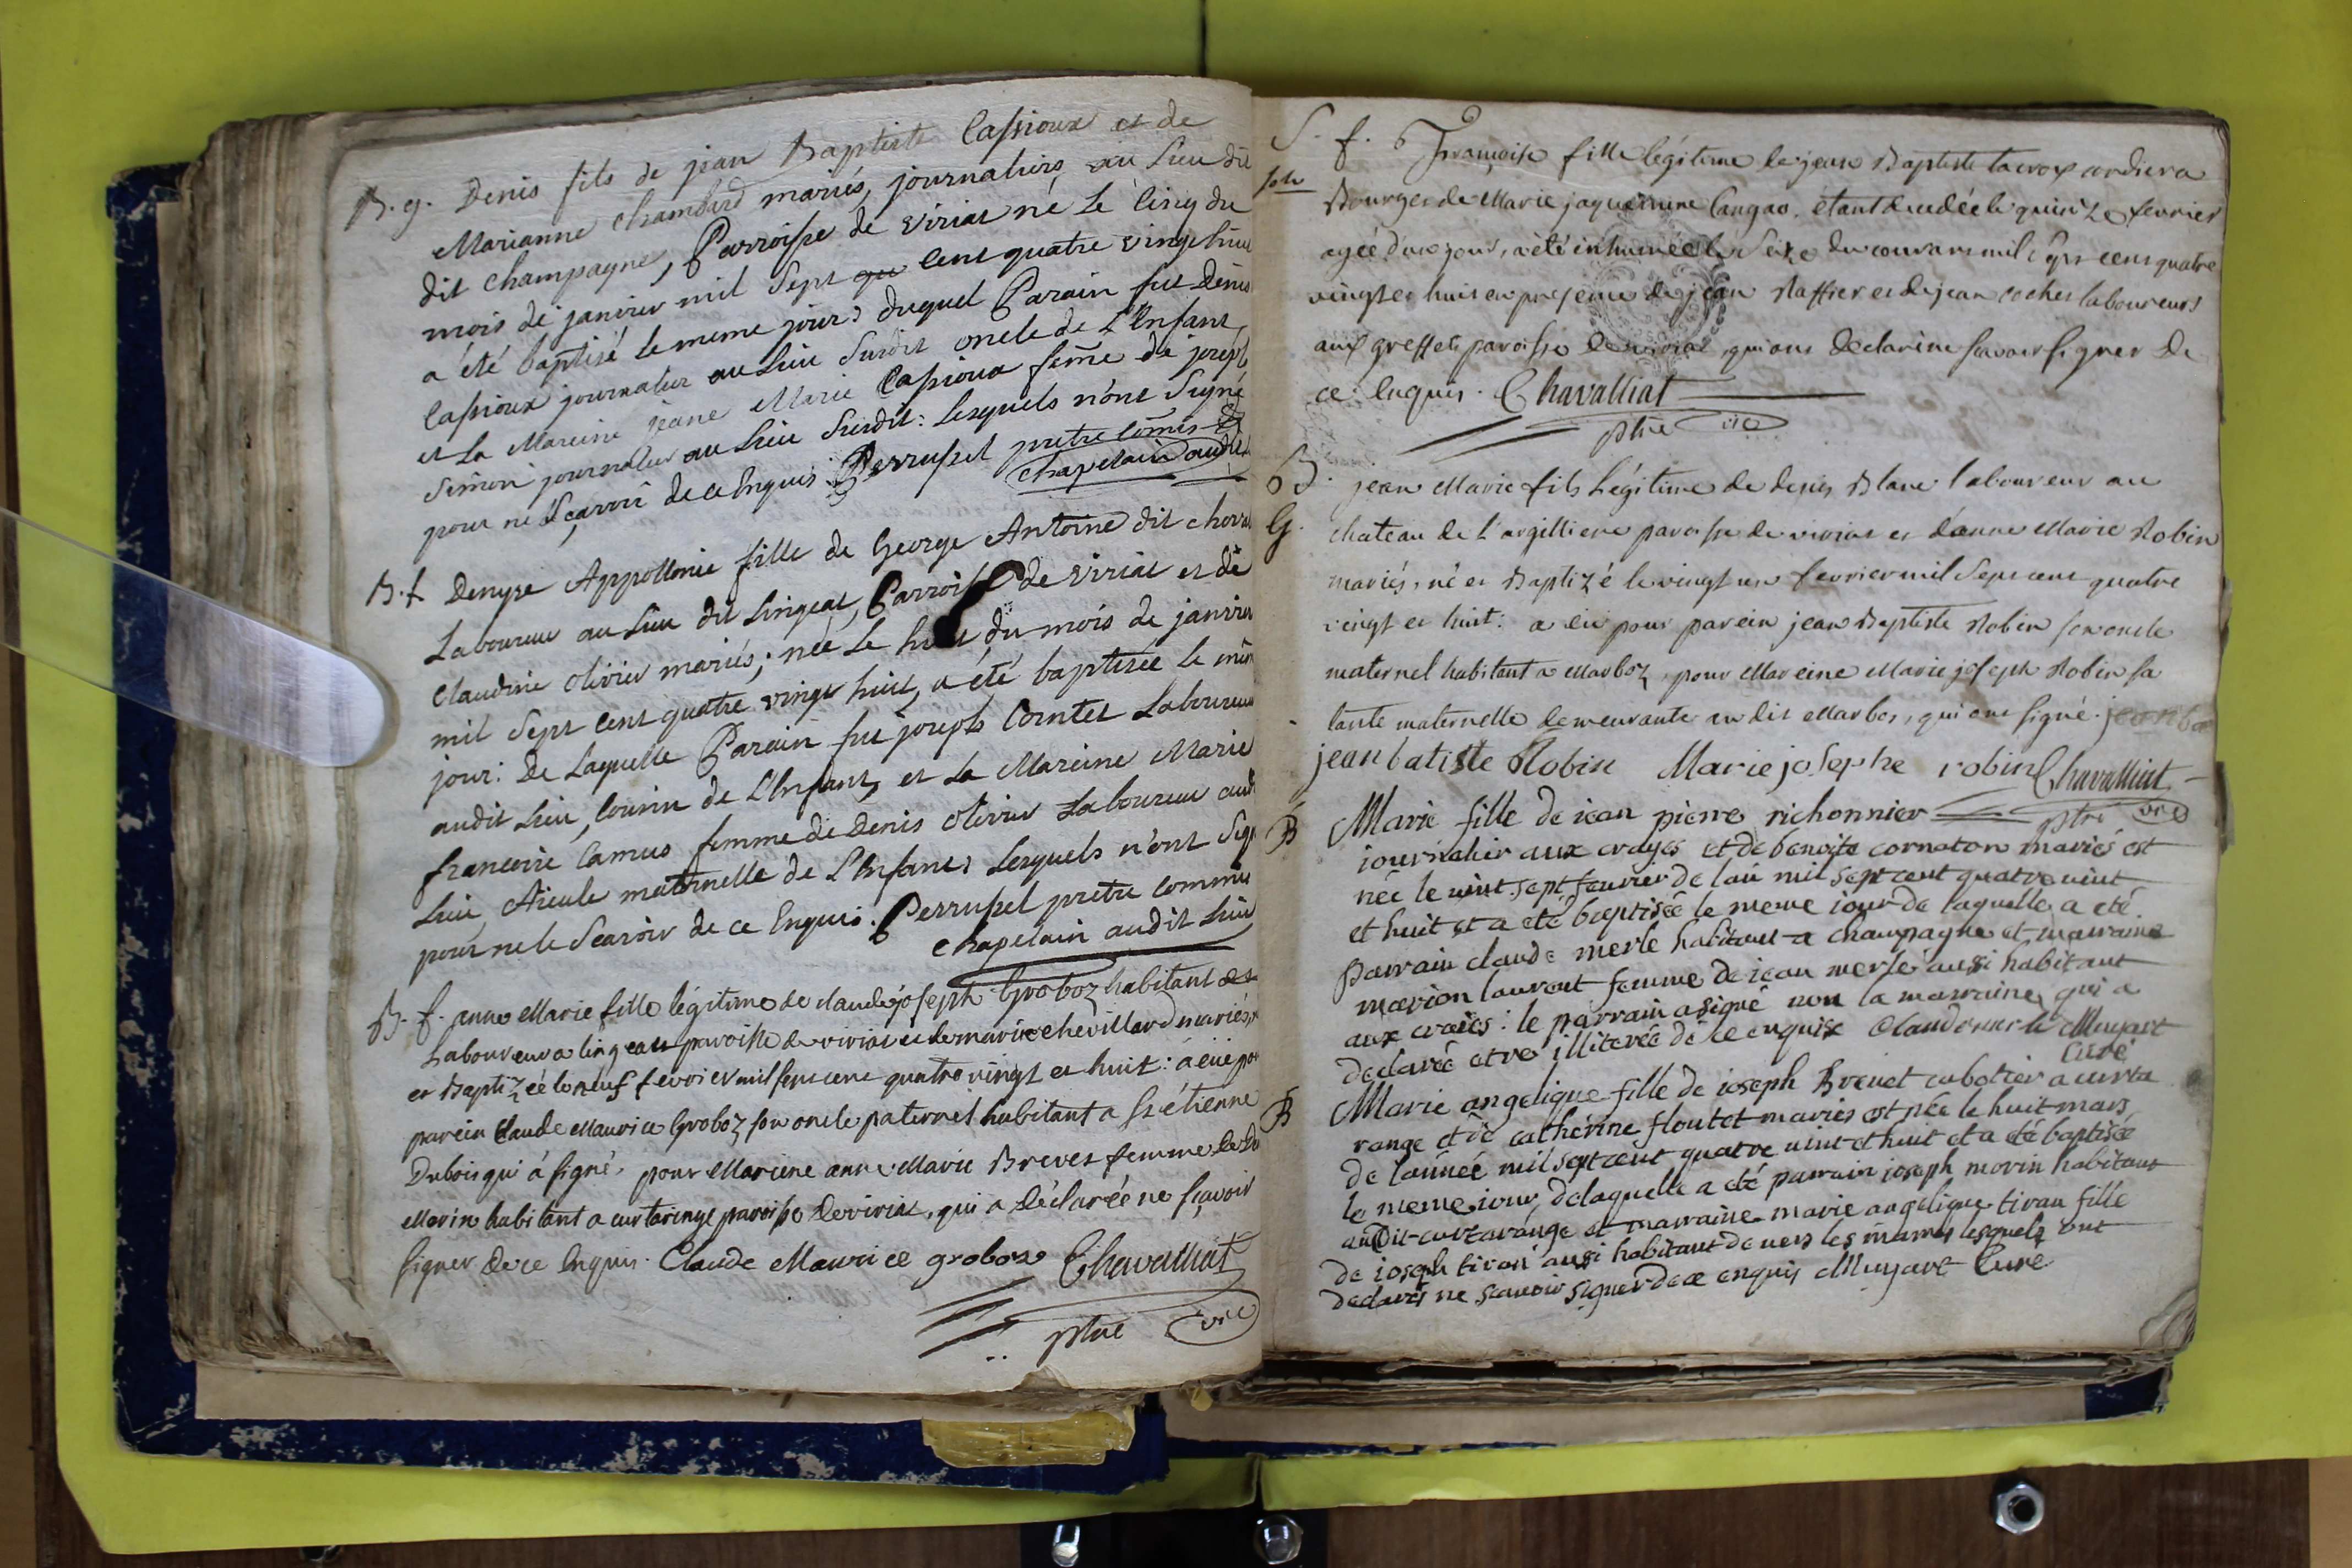 B. g. Denis fils de jean Baptiste Cassioux et de
Marianne Chambard mariés, journaliers au Lieu dit
dit Champagne, Parroisse de viriat né Le Cinq du
mois de janvier mil Sept qu Cent quatre vingt huit
a été baptisé Le meme jour: duquel Parain fut Denis
Cassioux journalier au Lieu Susdit oncle de L'Enfant,
et La Mareine jeane Marie Cassioux feme de joseph
Simon journalier au Lieu Susdit: Lesquels n'ont Signé
pour ne Sçavoir de ce Enquis. Perrussel pretre Comis et
Chapelain audit
B. f. Denyse Appollonie fille de George Antoine dit
Laboureur au Lieu dit Lingeat, Parroisse de viriat et de
Claudine olivier mariés; née Le huit du mois de janvier
mil Sept Cent quatre vingt huit, a été baptisée le mem
jour: De Laquelle Parain fut joseph Comtet Laboureur
audit Lieu, Cousin de L'Enfant, et La Mareine Marie
francoise Camus femme de Denis olivier Laboureur audit
Lieu, Aieule maternelle de L'Enfant: Lesquels n'ont Sig
pour ne le Scavoir de ce Enquis. Perrussel pretre Commis
Chapelain audit Lieu
B. f. anne Marie fille légitime de claude joseph Groboz habitant et
Laboureur a lingeat paroisse de viriat et de marie chevillard mariés,
et Baptizéé le neuf fevrier mil sept cent quatre vingt et huit: a eue po
parein Claude Maurice Groboz son oncle paternel habitant a st étienne
Dubois qui á signé, pour Mareine anne Marie Brevet femme de
Morin habitant a curtaringe paroisse de viriat, qui a déclaréé ne sçavoir
signer de ce enquis. Claude Maurice groboz Chavalliat
ptre vic
S. f. Françoise fille légitime de jean Baptiste lacroix cordier a
Bourg et de Marie jaquemine Cangao, étant decedéé le quinze fevrier
agéé d'un jour, a été inhuméé le Seize du courant mil sept cent quatre
vingt et huit en presence de jean Raffier et de jean cochet laboureurs
aux greffets paroisse de viriat qui ont déclaré ne scavoir signer de
ce enquis. Chavalliat
ptre vic
B. jean Marie fils Légitime de denis Blanc laboureur au
G. chateau de l'argilliere paroisse de viriat et d'anne Marie Robin
mariés, né et Baptizé le vingt un fevrier mil Sept cent quatre
vingt et huit: a eu pour parein jean Baptiste Robin son oncle
maternel habitant a Marboz, pour Mareine Marie joseph Robin sa
tante maternelle demeurante au dit Marbos, qui ont signé. jean ba
jean batiste Robin Marie josephe robin Chavalliat
ptre vic
B Marie fille de iean pierre richonnier
iournalier aux crayes et de benoite cornaton mariés est
née le uint sept feurier de lan mil sept cent quatre uint
et huit et a eté baptisée le meme iour de laquelle a eté
parrain claude merle habitant a champagne et marraine
marion laurent femme de iean merle aussi habitant
aux craies: le parrain a signé non la marraine qui a
declaré etre illiterée de ce enquise Claude merle Muyart
Curé
B Marie angelique fille de ioseph Brevet cabotier a curta
range et de catherine floutet mariés est née le huit mars
de l'année mil sept cent quatre uint et huit et a eté baptisée
le meme iour, de laquelle a eté parrain ioseph morin habitant
audit curtarange et marraine marie angelique tiran fille
de ioseph tiran aussi habitant de uers les mames lesquels ont
declarés ne scauoir signer de ce enquis Muyart Curé